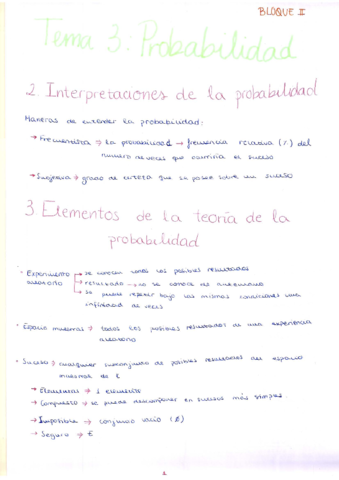 BLOQUE II
Tema 3: Probabilidad
2. Interpretaciones de la probabilidad
Maneras de entender la probabilidad:
→ Frecuentista → la probabilidad → frecuencia relativa (%) del
número de veces que ocurriría el suceso
→ Subjetiva → grado de certeza que se posee sobre un suceso
3 Elementos de la teoría de la
probabilidad
· Experimento → se conocen todos los posibles resultados
aleatorio → resultado → no se conoce de antemano
→ Se puede repetir bajo las mismas condiciones una
infinidad de veces
· Espacio muestral → todos los posibles resultados de una experiencia
aleatoria
· Suceso → cualquier subconjunto de posibles resultados del espacio
muestral de E
→ Elemental → 1 elemento
→ Compuesto → se puede descomponer en sucesos más simples
→ Imposible → conjunto vacío (Ø)
→ Seguro → E